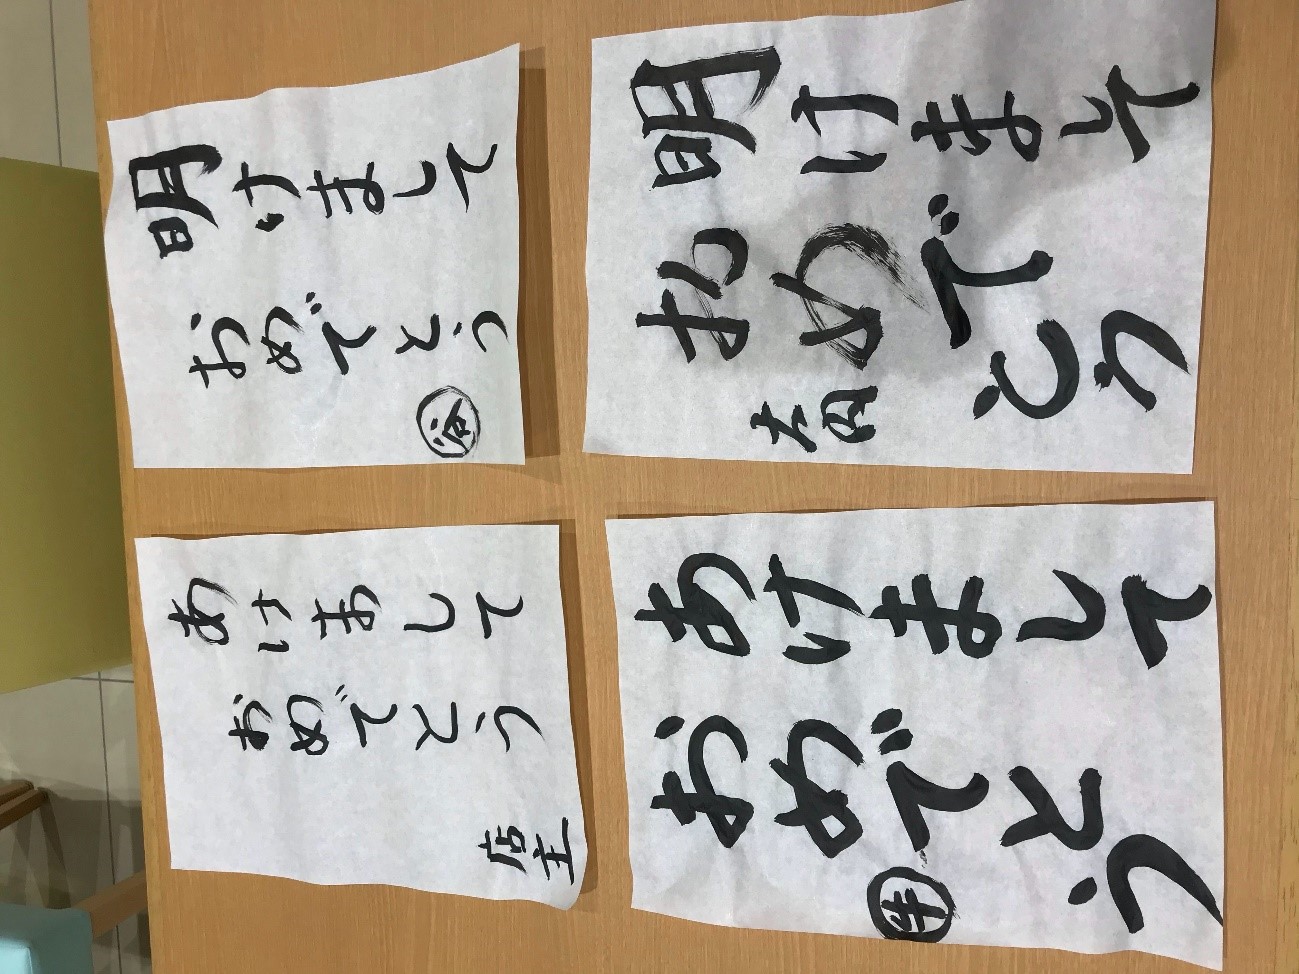 明けまして
おめでとう
谷
あけまして
おめでとう
店主
明けまして
おめでとう
あけまして
おめでとう
牛